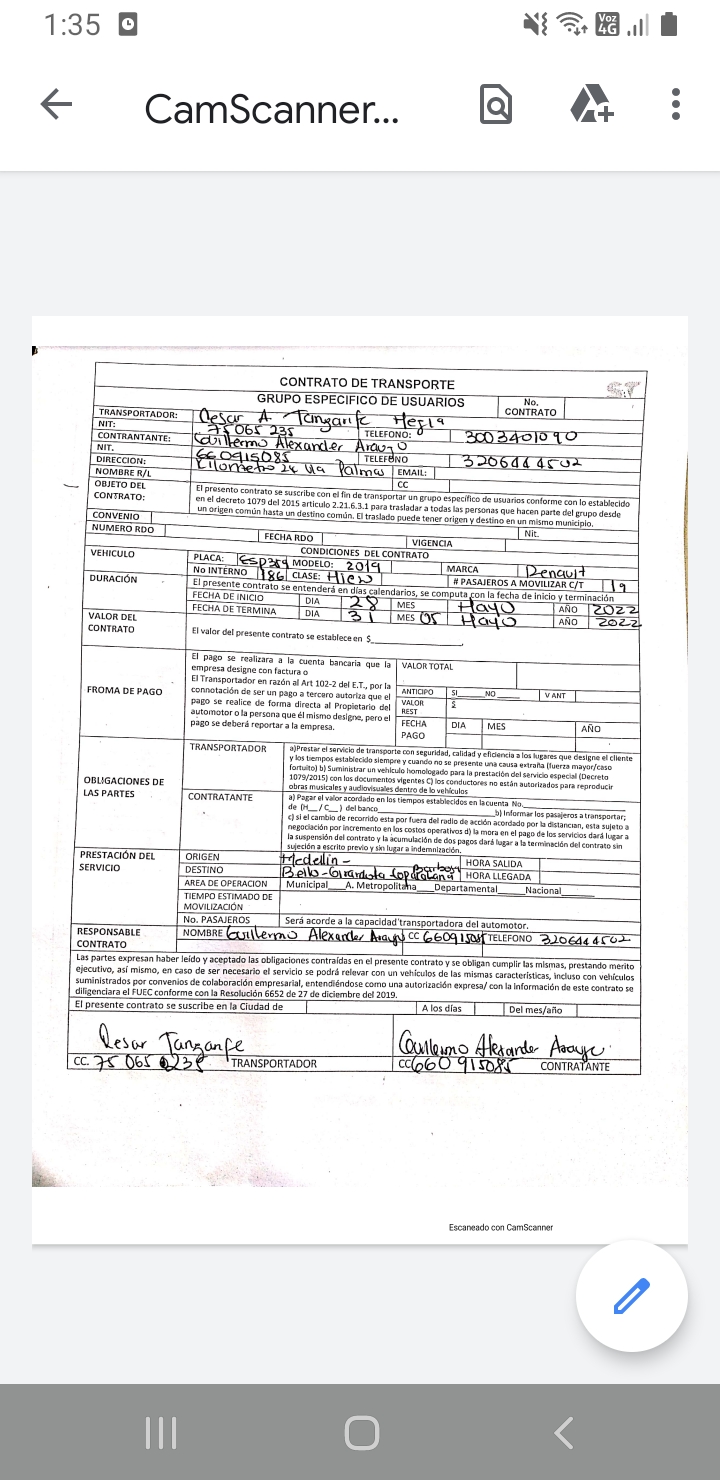 1:35
Voz 4G
CamScanner...
CONTRATO DE TRANSPORTE
GRUPO ESPECIFICO DE USUARIOS No. CONTRATO
TRANSPORTADOR: Cesar A Tangarife
NIT: 75065 235 TELEFONO: 3003401090
CONTRANTANTE: Guillermo Alexander Araujo
NIT. 660915085 TELEFONO 3206444502
DIRECCION: Kilometro 24 via Palmas EMAIL:
NOMBRE R/L CC
OBJETO DEL CONTRATO: El presento contrato se suscribe con el fin de transportar un grupo específico de usuarios conforme con lo establecido
en el decreto 1079 del 2015 articulo 2.21.6.3.1 para trasladar a todas las personas que hacen parte del grupo desde
un origen común hasta un destino común. El traslado puede tener origen y destino en un mismo municipio.
CONVENIO Nit.
NUMERO RDO FECHA RDO VIGENCIA
CONDICIONES DEL CONTRATO
VEHICULO PLACA: MODELO: 2019 MARCA Renault
No INTERNO 186 CLASE: # PASAJEROS A MOVILIZAR C/T 19
DURACIÓN El presente contrato se entenderá en días calendarios, se computa con la fecha de inicio y terminación
FECHA DE INICIO DIA 28 MES Mayo AÑO 2022
FECHA DE TERMINA DIA 31 MES 05 Mayo AÑO 2022
VALOR DEL CONTRATO El valor del presente contrato se establece en $
FROMA DE PAGO
El pago se realizara a la cuenta bancaria que la
empresa designe con factura o
El Transportador en razón al Art 102-2 del E.T., por la
connotación de ser un pago a tercero autoriza que el
pago se realice de forma directa al Propietario del
automotor o la persona que él mismo designe, pero el
pago se deberá reportar a la empresa.
VALOR TOTAL
ANTICIPO SI____NO____ V ANT
VALOR REST $
FECHA PAGO DIA MES AÑO
OBLIGACIONES DE LAS PARTES
TRANSPORTADOR a)Prestar el servicio de transporte con seguridad, calidad y eficiencia a los lugares que designe el cliente
y los tiempos establecido siempre y cuando no se presente una causa extraña (fuerza mayor/caso
fortuito) b) Suministrar un vehículo homologado para la prestación del servicio especial (Decreto
1079/2015) con los documentos vigentes C) los conductores no están autorizados para reproducir
obras musicales y audiovisuales dentro de lo vehículos
CONTRATANTE a) Pagar el valor acordado en los tiempos establecidos en la cuenta No.
de (H__/C__) del banco____b) Informar los pasajeros a transportar;
c) si el cambio de recorrido esta por fuera del radio de acción acordado por la distancian, esta sujeto a
negociación por incremento en los costos operativos d) la mora en el pago de los servicios dará lugar a
la suspensión del contrato y la acumulación de dos pagos dará lugar a la terminación del contrato sin
sujeción a escrito previo y sin lugar a indemnización.
PRESTACIÓN DEL SERVICIO
ORIGEN Medellin - HORA SALIDA
DESTINO Bello - Girardota Copacabana Barbosa HORA LLEGADA
AREA DE OPERACION Municipal___A. Metropolitana___Departamental___Nacional___
TIEMPO ESTIMADO DE MOVILIZACIÓN
No. PASAJEROS Será acorde a la capacidad transportadora del automotor.
RESPONSABLE CONTRATO NOMBRE Guillermo Alexander Araujo CC 660915085 TELEFONO 3206444502
Las partes expresan haber leído y aceptado las obligaciones contraídas en el presente contrato y se obligan cumplir las mismas, prestando merito
ejecutivo, así mismo, en caso de ser necesario el servicio se podrá relevar con un vehículos de las mismas características, incluso con vehículos
suministrados por convenios de colaboración empresarial, entendiéndose como una autorización expresa/ con la información de este contrato se
diligenciara el FUEC conforme con la Resolución 6652 de 27 de diciembre del 2019.
El presente contrato se suscribe en la Ciudad de A los días Del mes/año
Cesar Tangarife Guillermo Alexander Araujo
CC. 75 065 235 TRANSPORTADOR CC 660 915085 CONTRATANTE
Escaneado con CamScanner